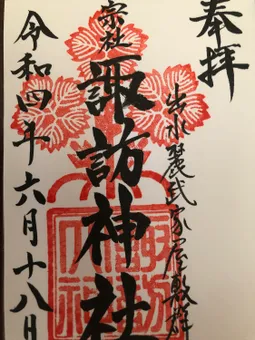 奉拝
出水麓武家屋敷群
宗社
諏訪神社
令和四年六月十八日